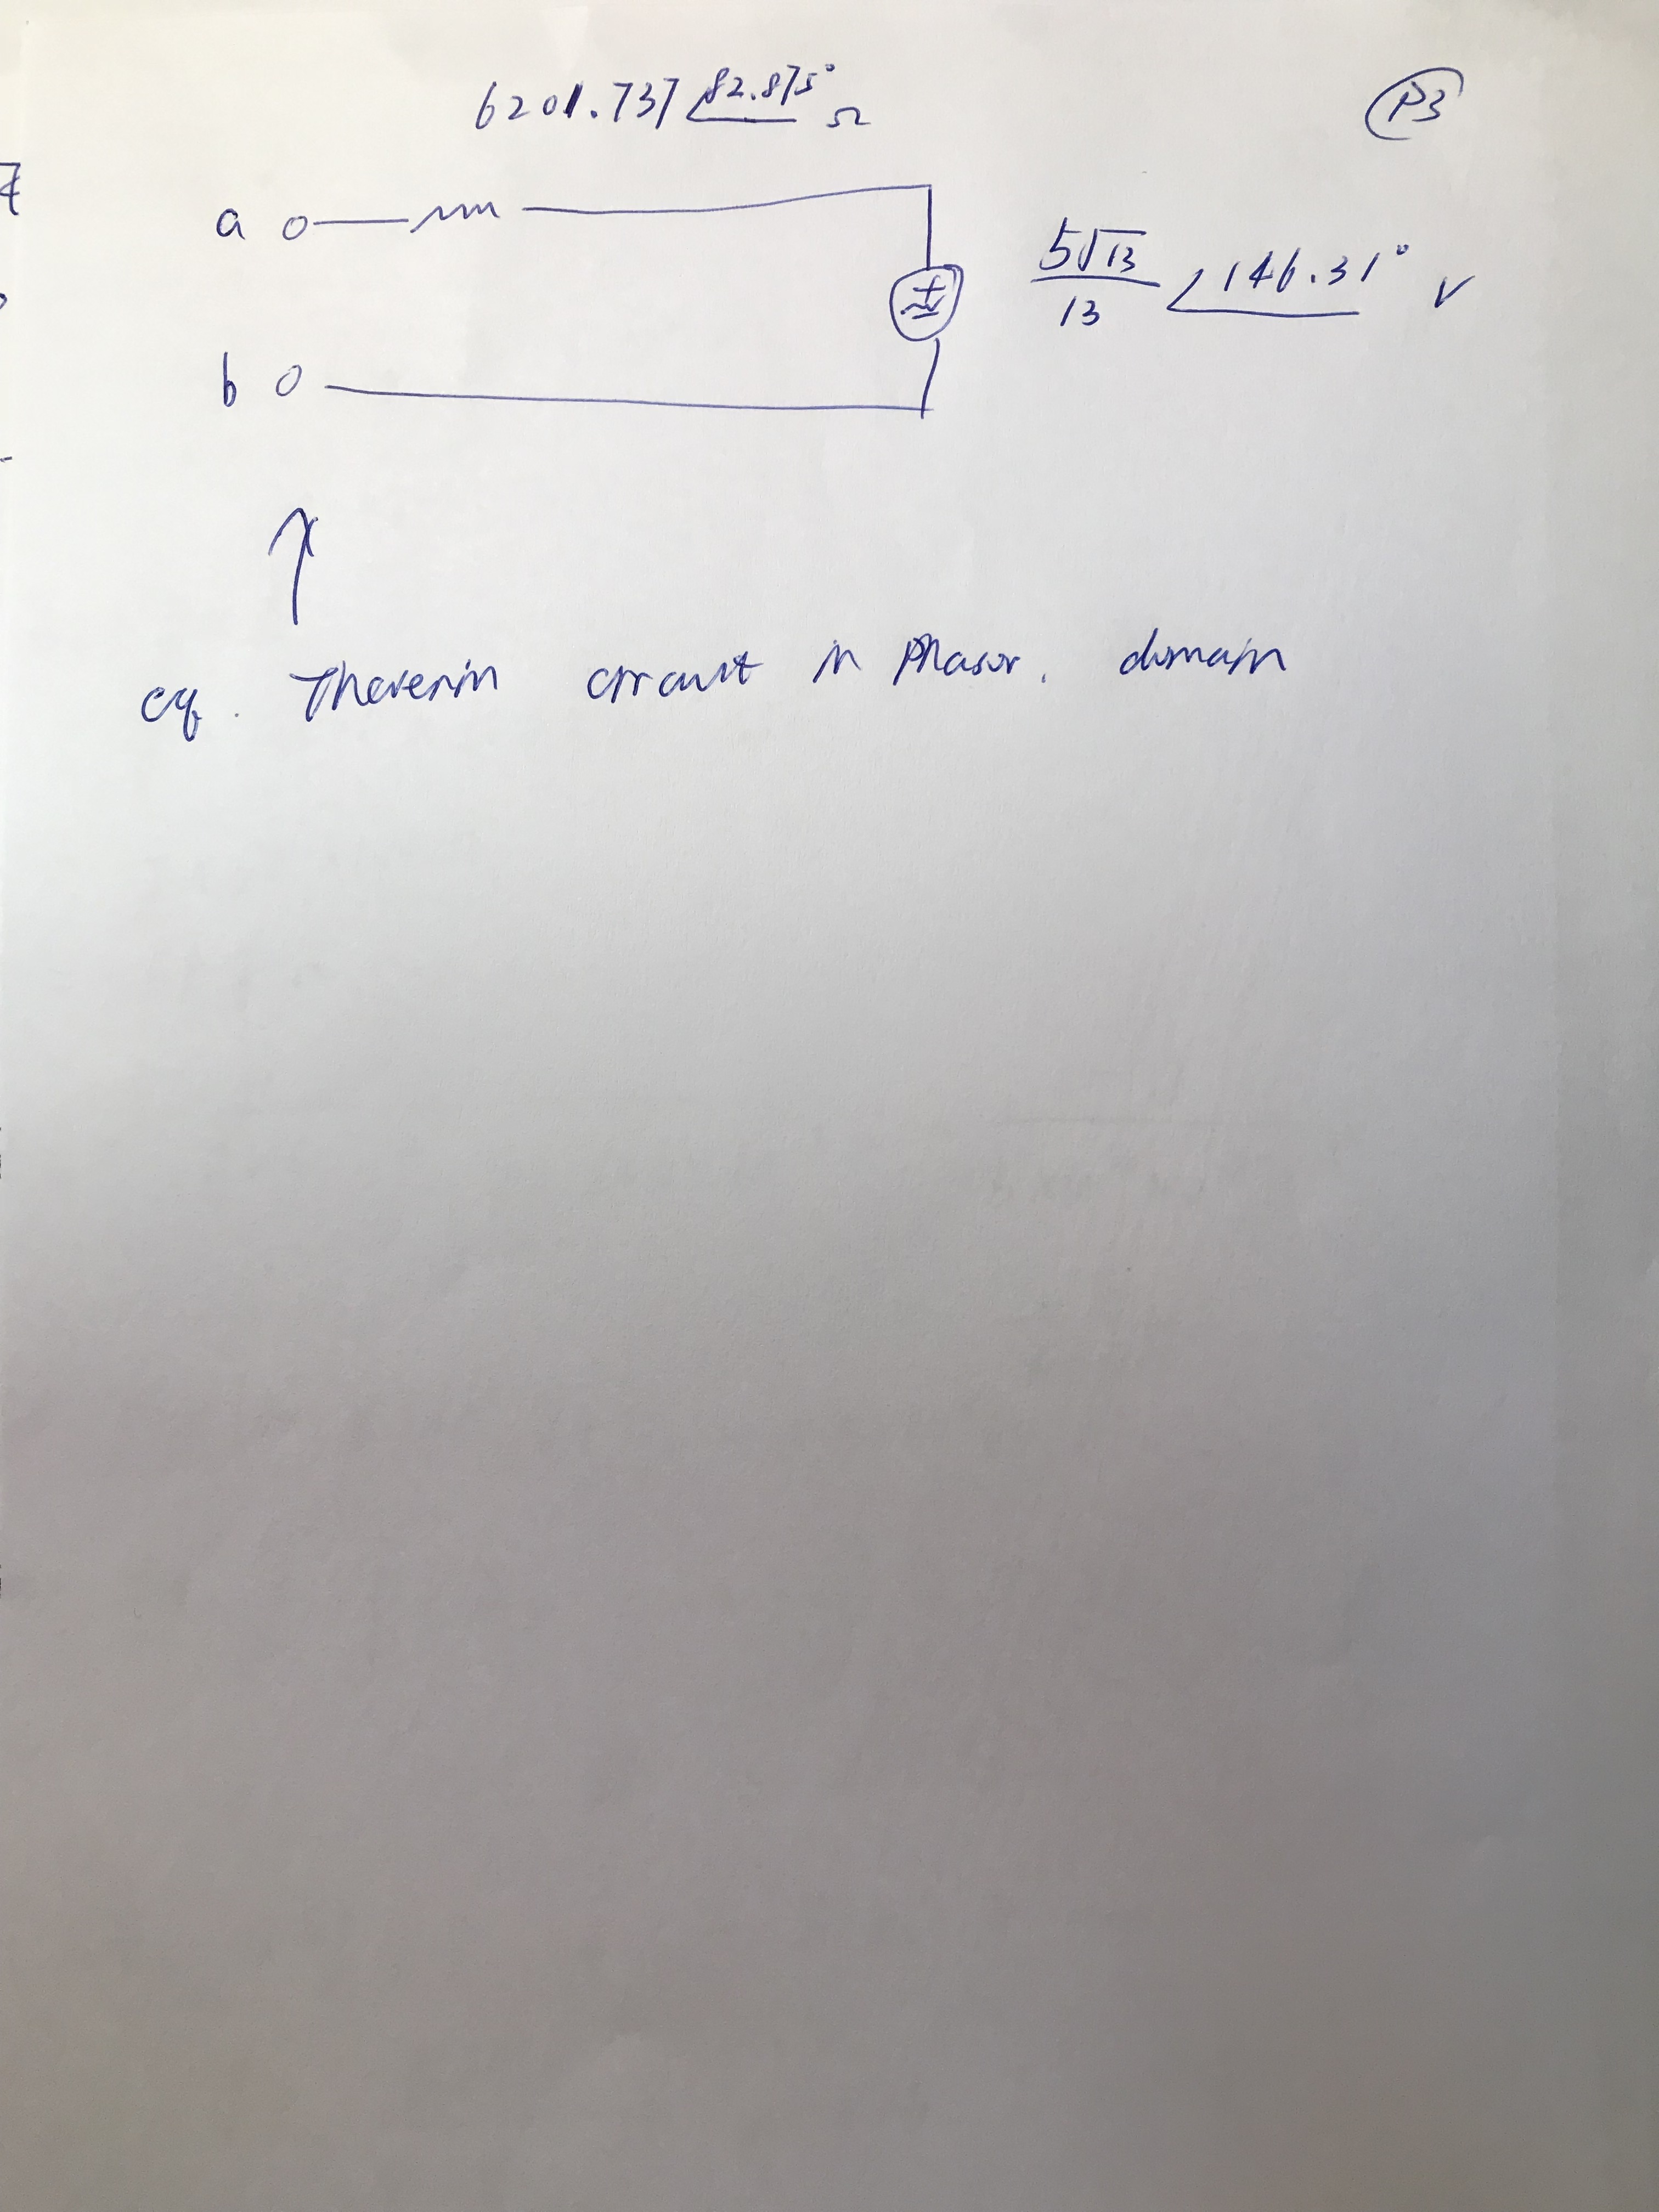 6201.737∠82.875° Ω
P3
a
5√13/13 ∠146.31° V
b
eq. Thevenin circuit in phasor. domain